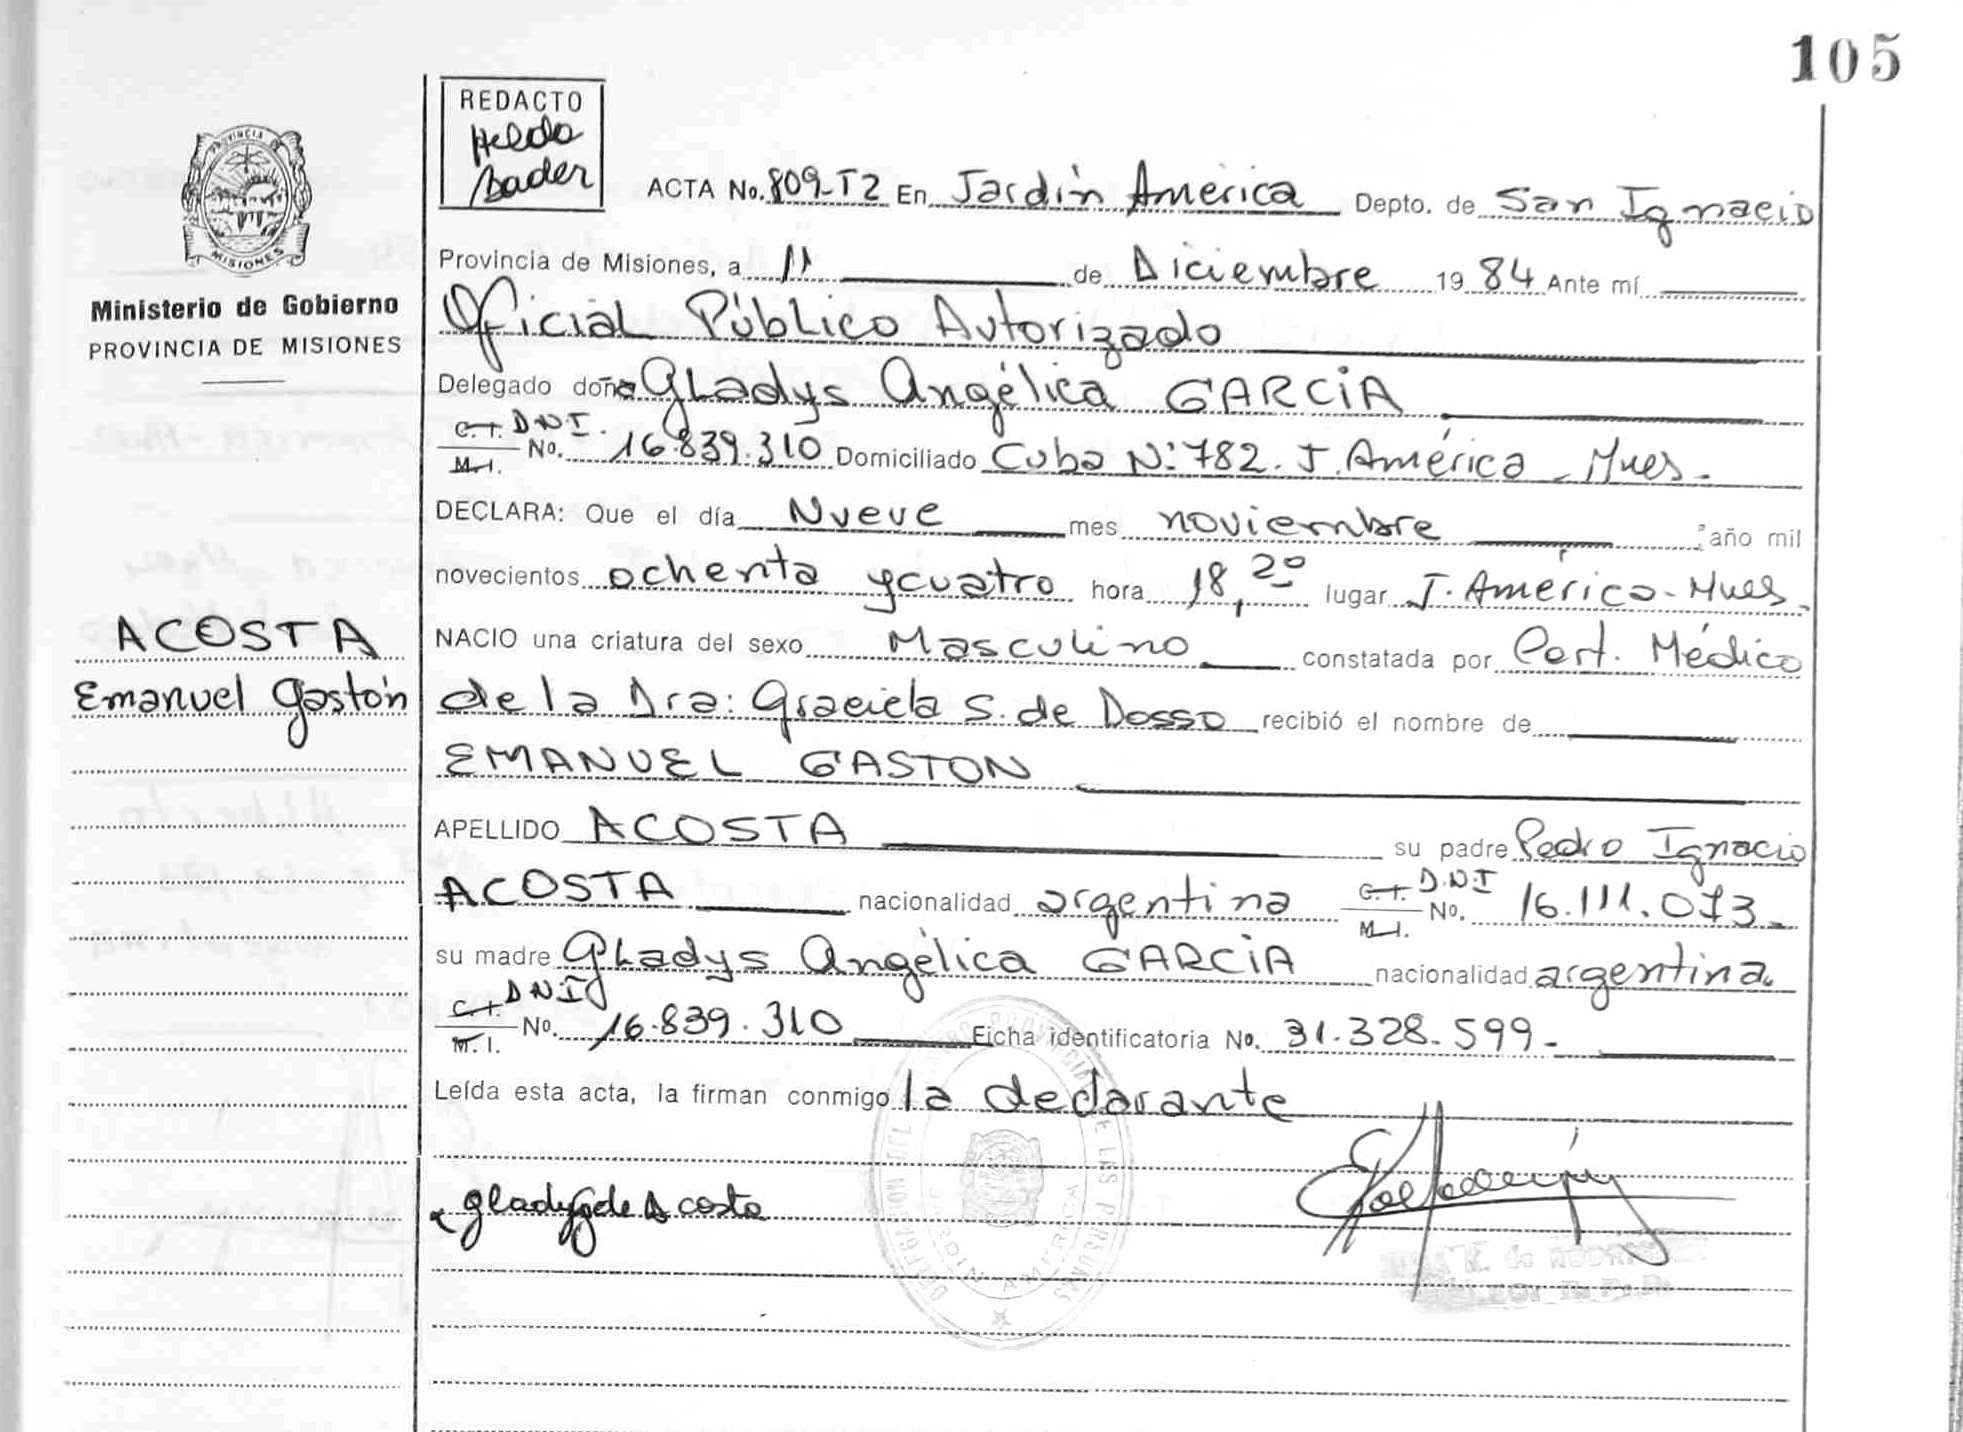 105
REDACTO
Helda
Bader
PROVINCIA DE
MISIONES
Ministerio de Gobierno
PROVINCIA DE MISIONES
ACTA No. 809-T2 En Jardín América Depto. de San Ignacio
Provincia de Misiones, a 11 de Diciembre 19 84 Ante mí
Oficial Público Autorizado
Delegado doña Gladys Angélica GARCÍA
C.I. D.N.I.
M.I. No. 16.839.310 Domiciliado Cuba N: 782. J. América - Mnes.
DECLARA: Que el día Nueve mes noviembre año mil
novecientos ochenta y cuatro hora 18,20 lugar J. América - Mnes.
NACIO una criatura del sexo Masculino constatada por Cert. Médico
de la Dra: Graciela S. de Dosso recibió el nombre de
EMANUEL GASTON
APELLIDO ACOSTA su padre Pedro Ignacio
ACOSTA nacionalidad argentina C.I. D.N.I M.I. No. 16.111.073-
su madre Gladys Angélica GARCÍA nacionalidad argentina
C.I. D.N.I
M.I. No. 16.839.310 Ficha identificatoria No. 31.328.599-
Leída esta acta, la firman conmigo la declarante
ACOSTA
Emanuel Gastón
Gladys G de Acosta
DELEGACION DEL REGISTRO PROVINCIAL DE LAS PERSONAS
JARDIN AMERICA